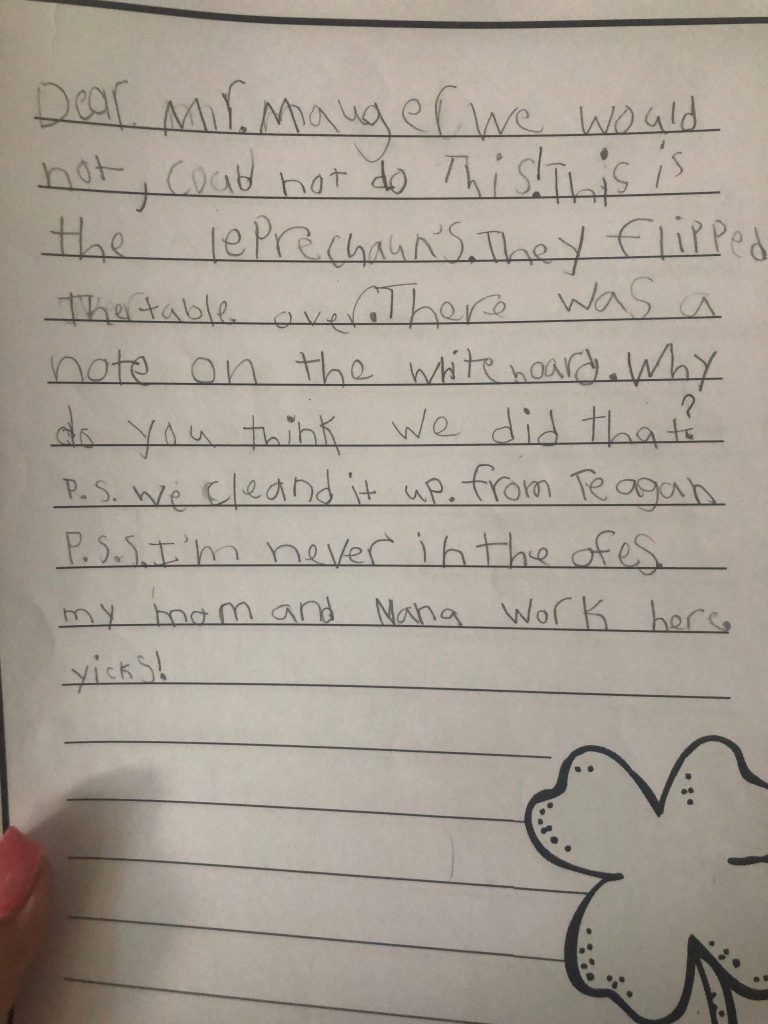 Dear Mr. Mauger we would
not, coud not do This! This is
the leprechaun's. They flipped
The table over. There was a
note on the white board. Why
do you think we did that?
P.S. we cleand it up. from Teagan
P.S.S. I'm never in the ofes
my mom and Nana work here
yicks!